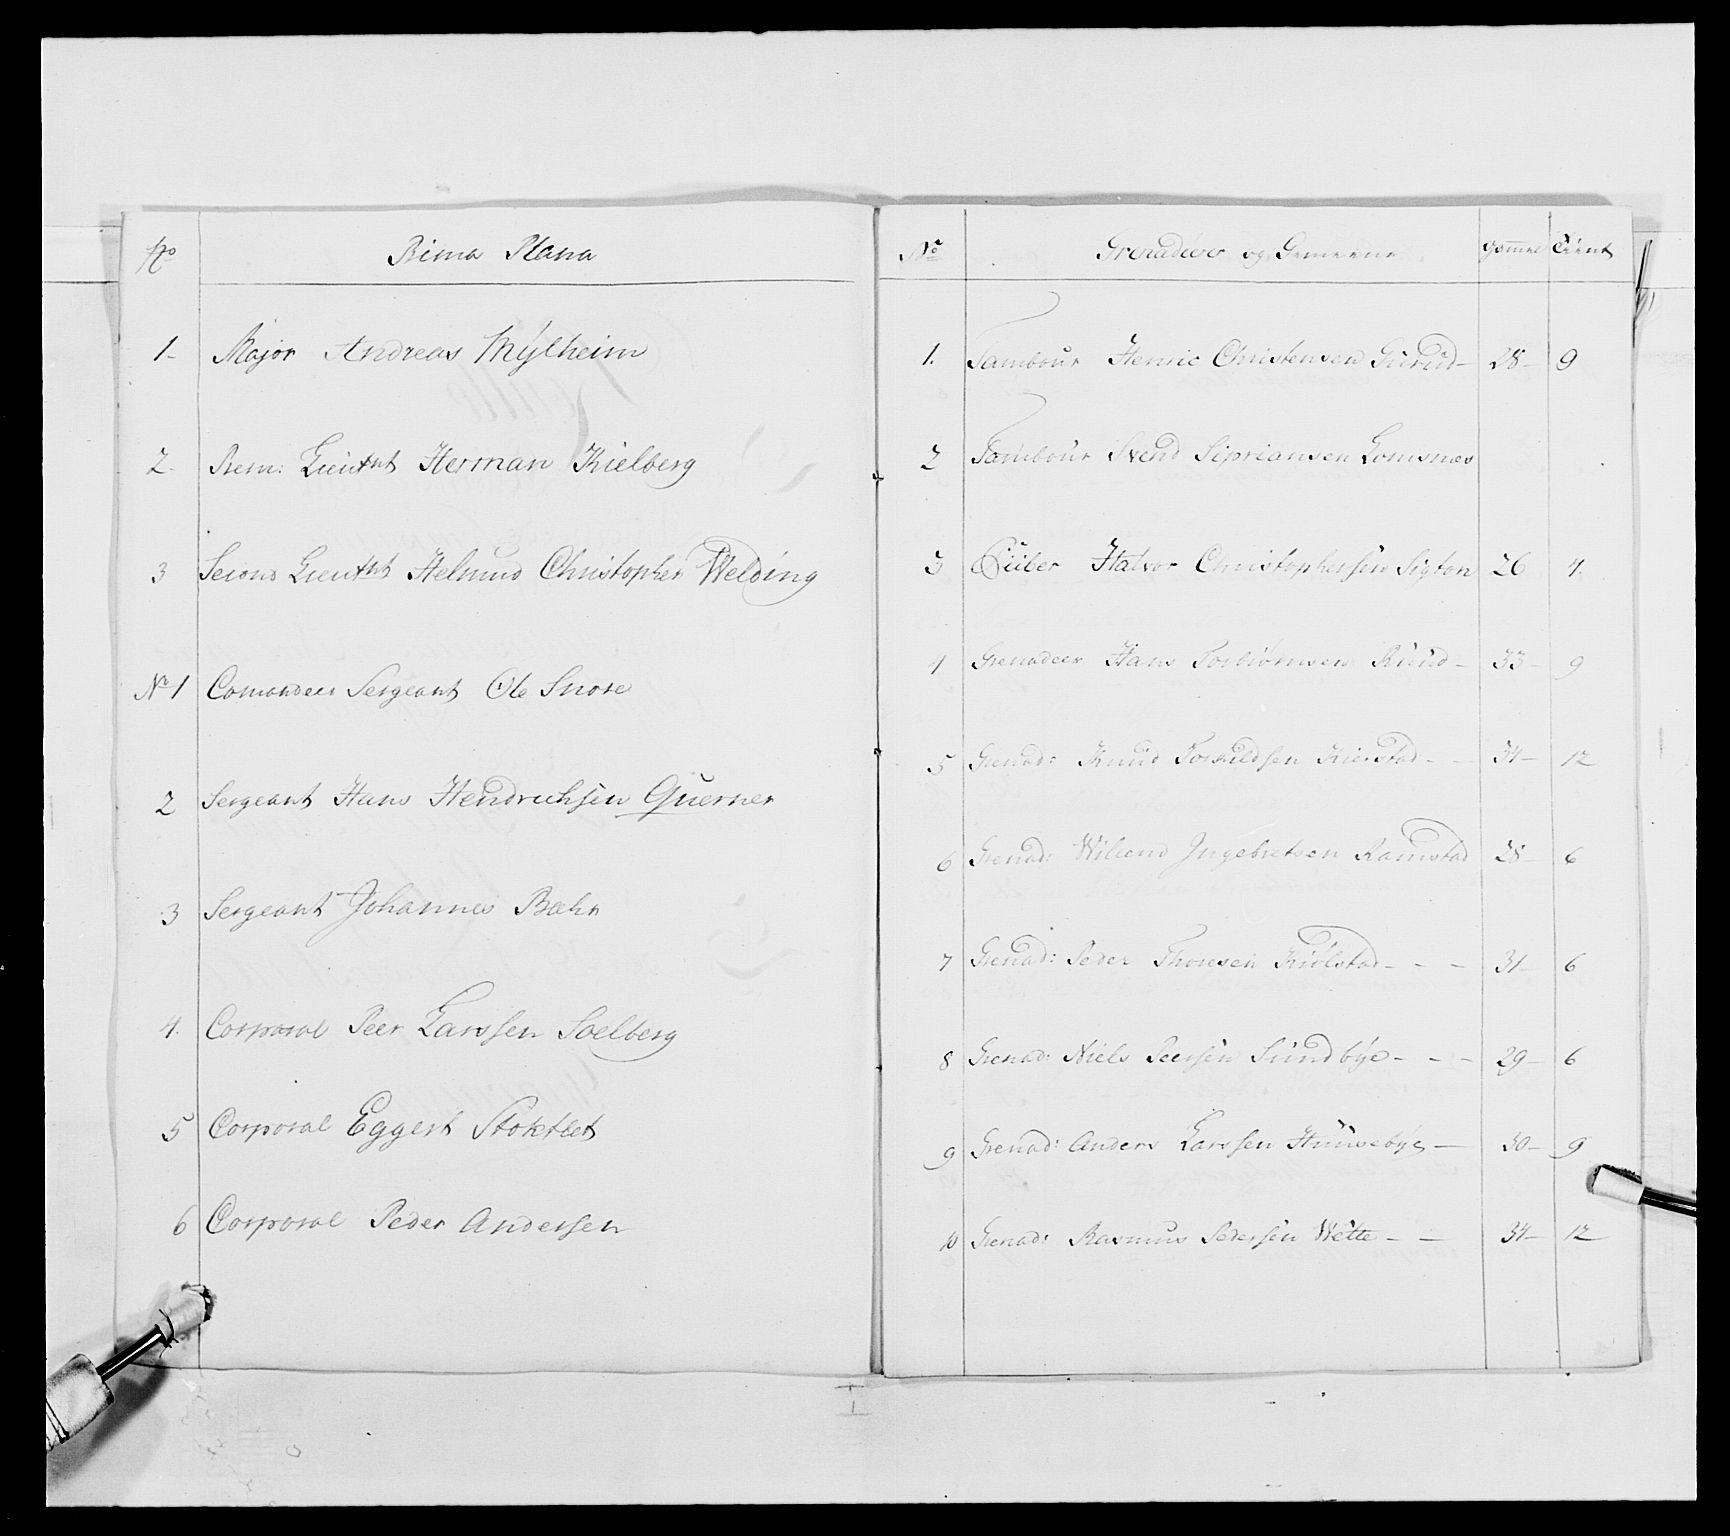 No Prima Plana
1- Major Andreas Mÿlheim
2. Prem: Lieutnt Herman Kielberg
3 Second Lieutnt Helmud Christopher Welding
No 1 Comandeer Sergeant Ole Snore
2 Sergeant Hans Hendrichsen Querner
3 Sergeant Johannes Bæhr
4. Corporal Peer Larssen Soelberg
5 Corporal Eggert Stoktlet
6 Corporal Peder Andersen
No Grenadeer og Gemeene Gammel Tient
1. Tambour Henric Christensen Gurud- 28- 9
2 Tambour Svend Siprianssen Lomsnæs
3 Piiber Halvor Christophersen Sigton 26 4.
4 Grenadeer Hans Torbiørnsen Ruud- 33- 9
5 Grenad: Knud Torkildsen Kierstad- - 34- 12
6 Grenad: Ingebretsen Ramstad 28- 6
7 Grenad: Peder Thoresen Kiølstad- - - 31- 6
8 Grenad: Niels Peersen Sundbÿe- - - 29- 6
9 Grenad: Anders Larssen Huusebÿe- 30- 9
10 Grenad: Rasmus Pedersen Wette- - 34- 12